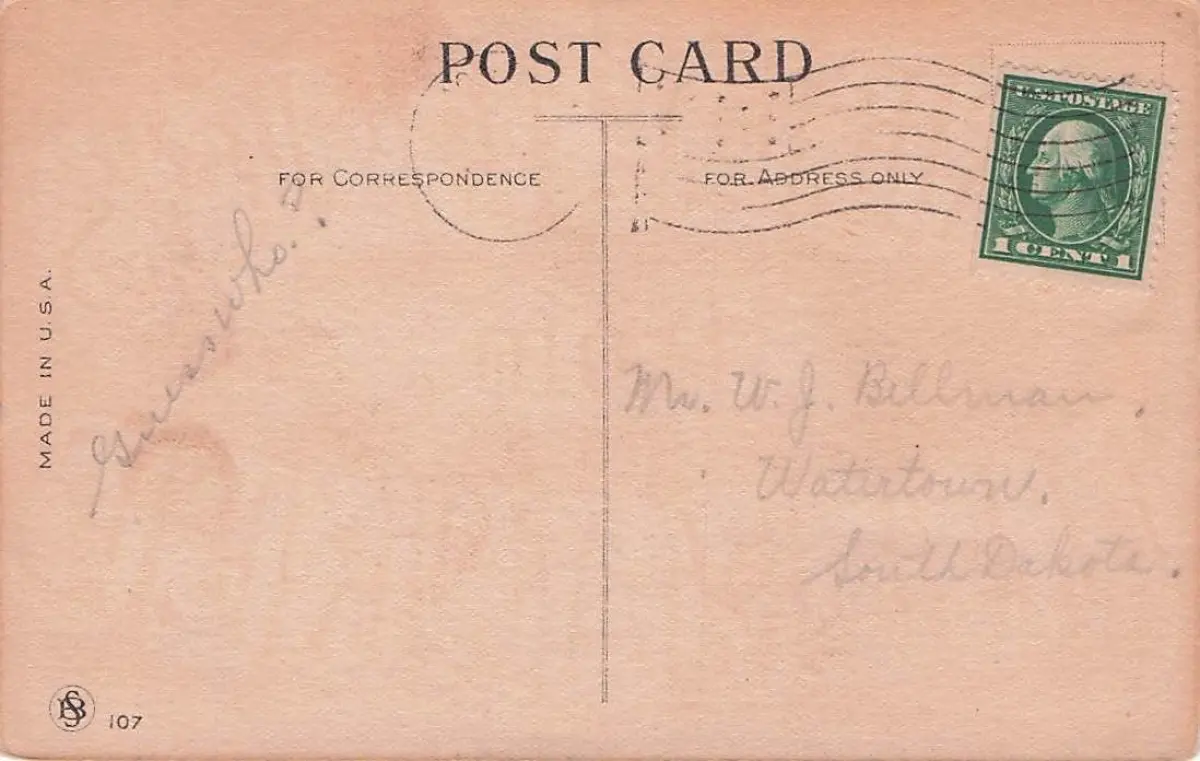 POST CARD
FOR CORRESPONDENCE
FOR ADDRESS ONLY
U.S. POSTAGE
1 CENT 1
Guess who.?
Mr. W. J. Bellman,
Watertown.
South Dakota.
MADE IN U.S.A.
BS
107